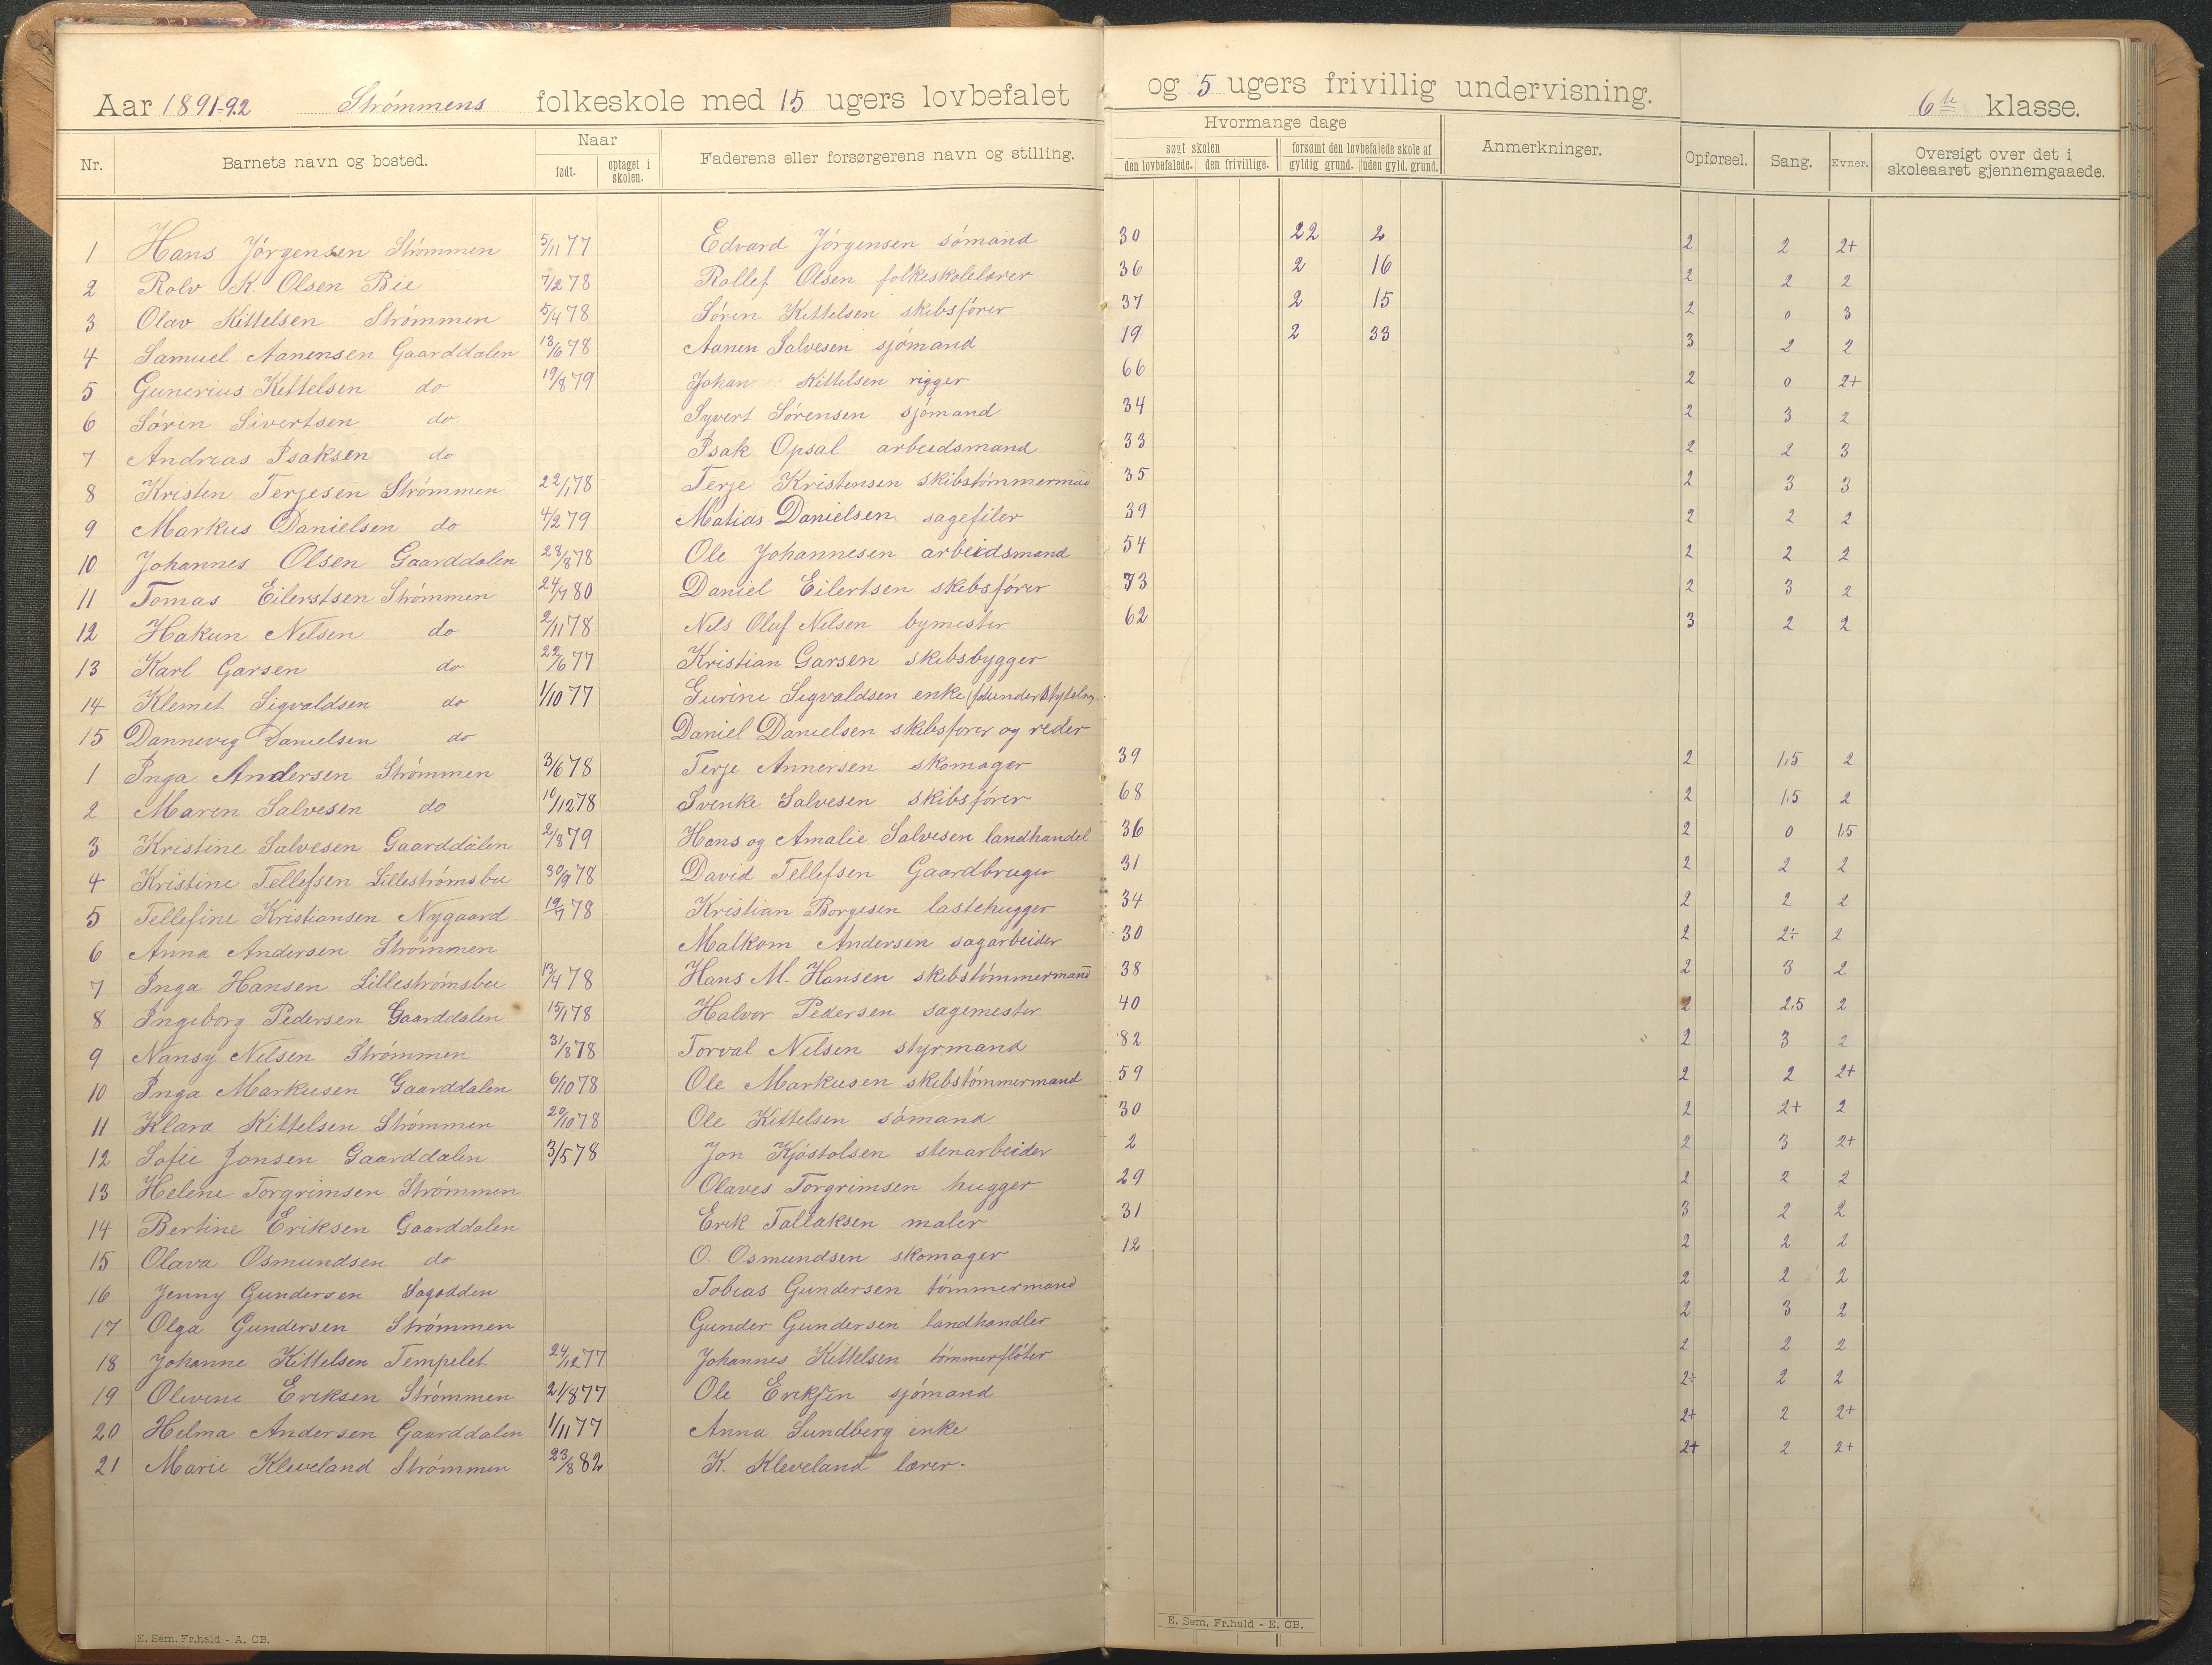 Aar 1891-92 Strømmens folkeskole med 15 ugers lovbefalet og 5 ugers frivillig undervisning. 6te klasse.
Nr. Barnets navn og bosted. Naar født. optaget i skolen. Faderens eller forsørgerens navn og stilling. Hvormange dage søgt skolen den lovbefalede. den frivillige. forsømt den lovbefalede skole af gyldig grund. uden gyld. grund. Anmerkninger. Opførsel. Sang. Evner. Oversigt over det i skoleaaret gjennemgaaede.
1 Hans Jörgensen Strömmen 5/11 77 Edvard Jörgensen sömand 30 22 2 2 2 2+
2 Rolv K. Olsen Bie 7/2 78 Rollef Olsen folkeskolelærer 36 2 16 2 2 2
3 Olav Kittelsen Strömmen 5/4 78 Sören Kittelsen skibsförer 37 2 15 2 0 3
4 Samuel Aanensen Gaarddalen 13/6 78 Aanen Salvesen sjömand 19 2 33 3 2 2
5 Gunerius Kittelsen do 19/8 79 Johan Kittelsen rigger 66 2 0 2+
6 Sören Sivertsen do Syvert Sörensen sjömand 34 2 3 2
7 Andreas Isaksen do Isak Opsal arbeidsmand 33 2 2 3
8 Kristen Terjesen Strömmen 22/1 78 Terje Kristensen skibstömmermand 35 2 3 3
9 Markus Danielsen do 4/2 79 Matias Danielsen sagefiler 39 2 2 2
10 Johannes Olsen Gaarddalen 28/8 78 Ole Johannesen arbeidsmand 54 2 2 2
11 Tomas Eilerstsen Strömmen 24/7 80 Daniel Eilertsen skibsförer 73 2 3 2
12 Hakun Nelsen do 2/11 78 Nels Oluf Nelsen bymester 62 3 2 2
13 Karl Garsen do 22/6 77 Kristian Garsen skibsbygger
14 Klemet Sigvaldsen do 1/10 77 Gurine Sigvaldsen enke
15 Dannevig Danielsen do Daniel Danielsen skibsförer og reder
1 Inga Andersen Strömmen 3/6 78 Terje Annersen skomager 39 2 1,5 2
2 Maren Salvesen do 10/12 78 Svenke Salvesen skibsförer 68 2 1,5 2
3 Kristine Salvesen Gaarddalen 2/8 79 Hans og Amalie Salvesen landhandel 36 2 0 1,5
4 Kristine Tellefsen Lilleströmsbu 30/9 78 David Tellefsen Gaardbruger 31 2 2 2
5 Tellefine Kristiansen Nygaard 19/7 78 Kristian Borgesen lastehugger 34 2 2 2
6 Anna Andersen Strömmen Malkom Andersen sagarbeider 30 2 2÷ 2
7 Inga Hansen Lilleströmsbu 13/4 78 Hans M. Hansen skibstömmermand 38 2 3 2
8 Ingeborg Pedersen Gaarddalen 15/1 78 Halvor Pedersen sagemester 40 2 2,5 2
9 Nansy Nelsen Strömmen 31/8 78 Torval Nelsen styrmand 82 2 3 2
10 Inga Markusen Gaarddalen 6/10 78 Ole Markusen skibstömmermand 59 2 2 2+
11 Klara Kittelsen Strömmen 20/10 78 Ole Kittelsen sömand 30 2 2+ 2
12 Sofie Jonsen Gaarddalen 3/5 78 Jon Kjöstolsen stenarbeider 2 2 3 2+
13 Helene Torgrimsen Strömmen Olaves Torgrimsen hugger 29 2 2 2
14 Bertine Eriksen Gaarddalen Erik Tallaksen maler 31 3 2 2
15 Olava Osmundsen do O. Osmundsen skomager 12 2 2 2
16 Jenny Gundersen Sagodden Tobias Gundersen tömmermand 2 2 2
17 Olga Gundersen Strömmen Gunder Gundersen landhandler 2 3 2
18 Johanne Kittelsen Tempelet 24/12 77 Johannes Kittelsen tömmerflöter 2 2 2
19 Olevine Eriksen Strömmen 21/8 77 Ole Eriksen sjömand 2÷ 2 2
20 Helma Andersen Gaarddalen 1/11 77 Anna Sundberg enke 2+ 2 2+
21 Marie Kleveland Strömmen 23/8 82 K. Kleveland lærer. 2+ 2 2+
E. Sem, Fr.hald - A. CB.
E. Sem, Fr.hald - E. CB.